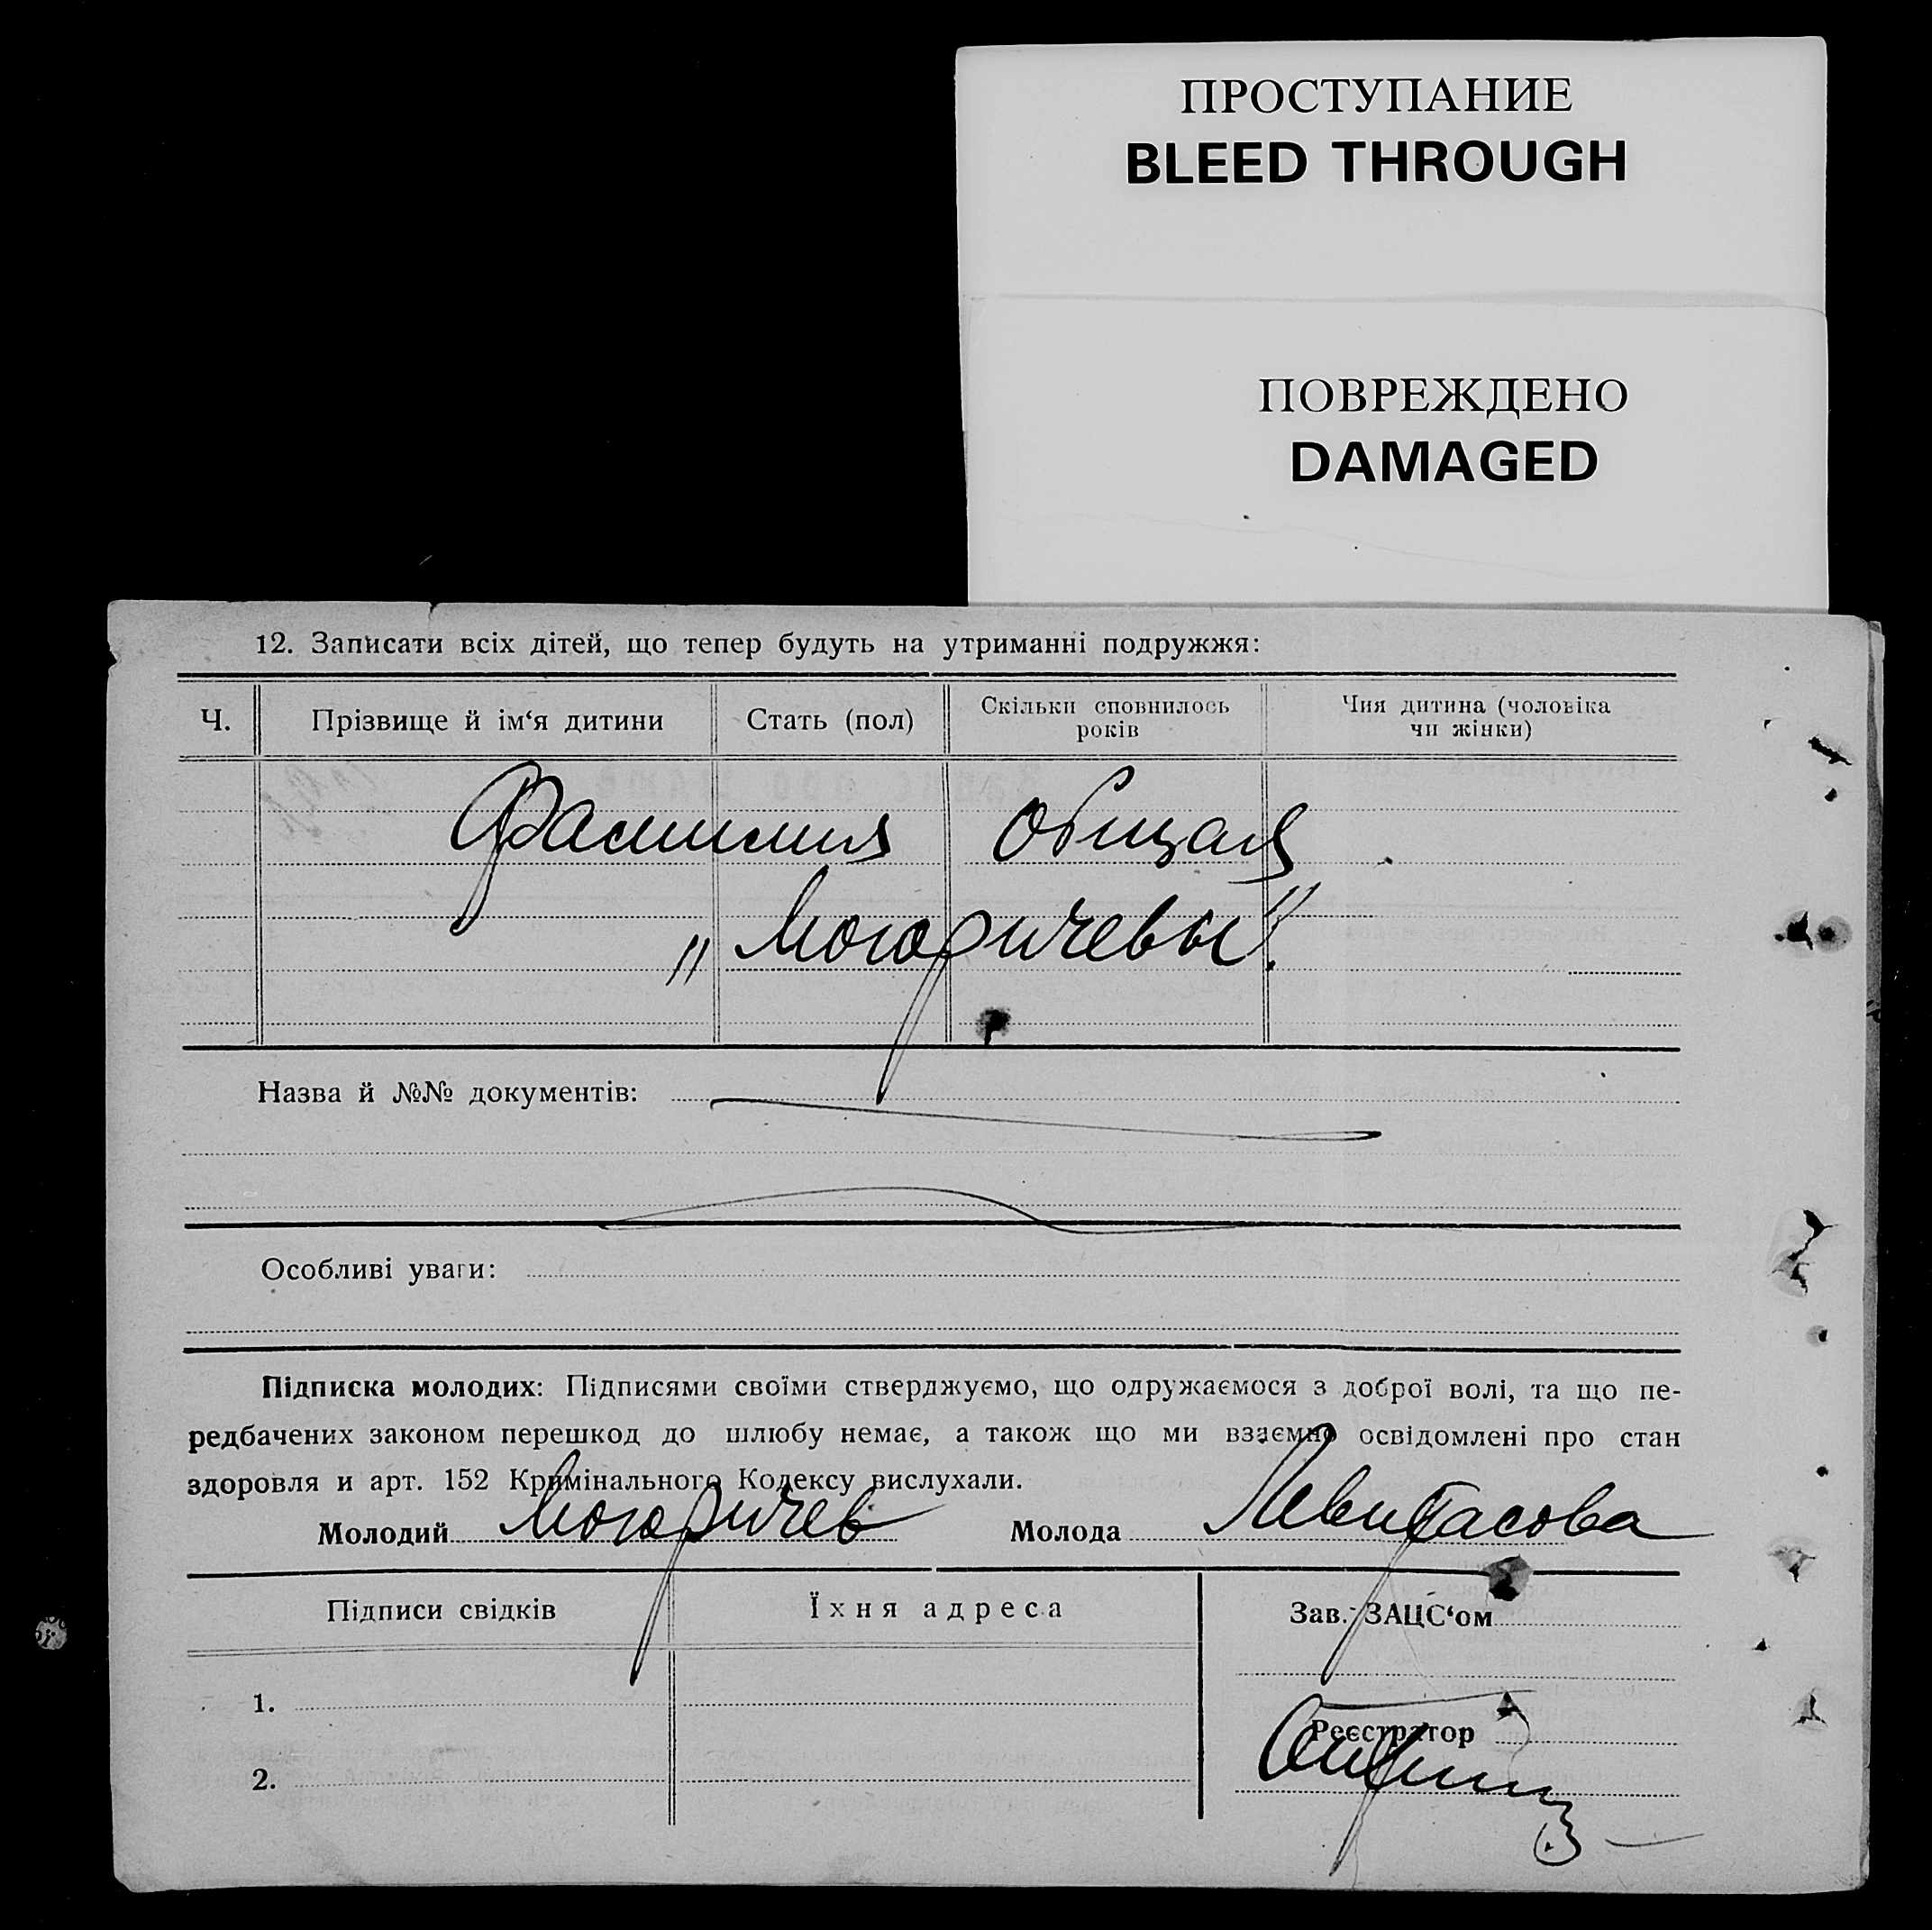 ПРОСТУПАНИЕ
BLEED THROUGH
ПОВРЕЖДЕНО
DAMAGED
12. Записати всіх дітей, що тепер будуть на утриманні подружжя:
Ч. Прізвище й ім‘я дитини Стать (пол) Скільки сповнилось років Чия дитина (чоловіка чи жінки)
Фамилия общая
„Могоричевы".
Назва й №№ документів:
Особливі уваги:
Підписка молодих: Підписями своїми стверджуємо, що одружаємося з доброї волі, та що пе-
редбачених законом перешкод до шлюбу немає, а також що ми взаємно освідомлені про стан
здоровля и арт. 152 Кримінального Кодексу вислухали.
Молодий Могоричев Молода Левитасова
Підписи свідків Їхня адреса Зав. ЗАЦС‘ом
1.
Реєстратор
2.